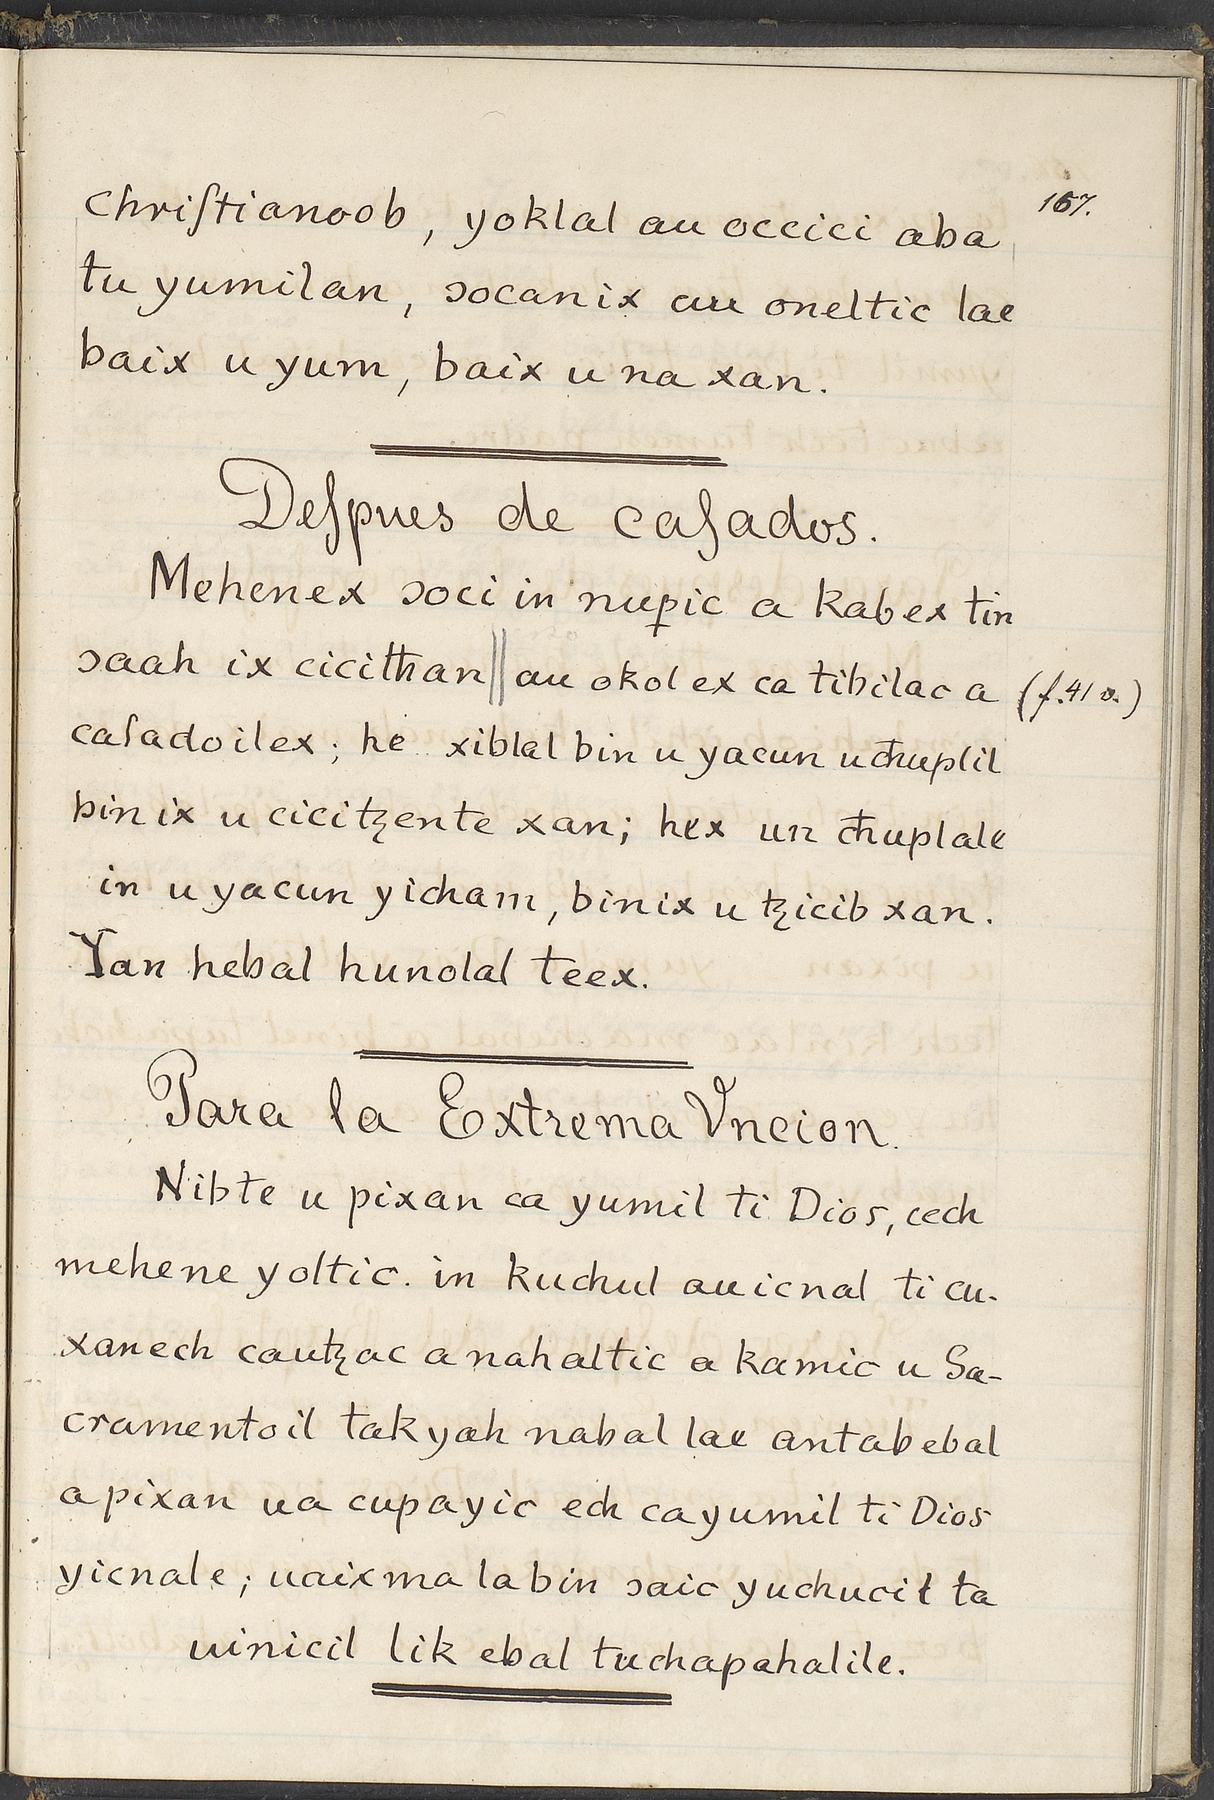 167.
chriſtianoob, yoklal au occici aba
tu yumilan, ɔocanix au oneltic lae
baix u yum, baix u na xan.
Deſpues de caſados.
Mehenex ɔoci in nup̱ic a kabex tin
ɔaah ix cicitħan || au okol ex ca tibilac a (f. 41 v.)
caſadoilex; he xiblal bin u yacun u cħuplil
binix u cicitꜩente xan; hex un cħuplale
in u yacun yicham, binix u tꜩicib xan.
Yan hebal hunolal teex.
Para la Extrema Vncion.
Nibte u pixan ca yumil ti Dios, cech
mehene yoltic. in kuchul auicnal ti cu-
xanech cautꜩac a nahaltic a kamic u Sa-
cramentoil takyah nabal lae antabebal
a pixan ua cupayic ech cayumil ti Dios
yicnale; uaixma la bin ɔaic yuchucil ta
uinicil lik ebal tuchapahalile.